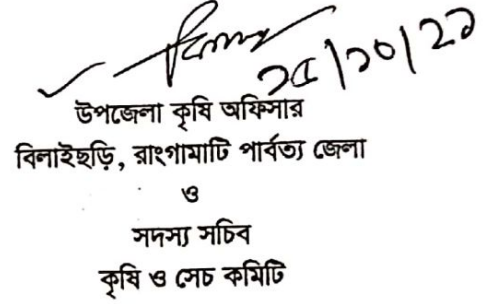 ২৫/১০/২১
উপজেলা কৃষি অফিসার
বিলাইছড়ি, রাংগামাটি পার্বত্য জেলা
ও
সদস্য সচিব
কৃষি ও সেচ কমিটি